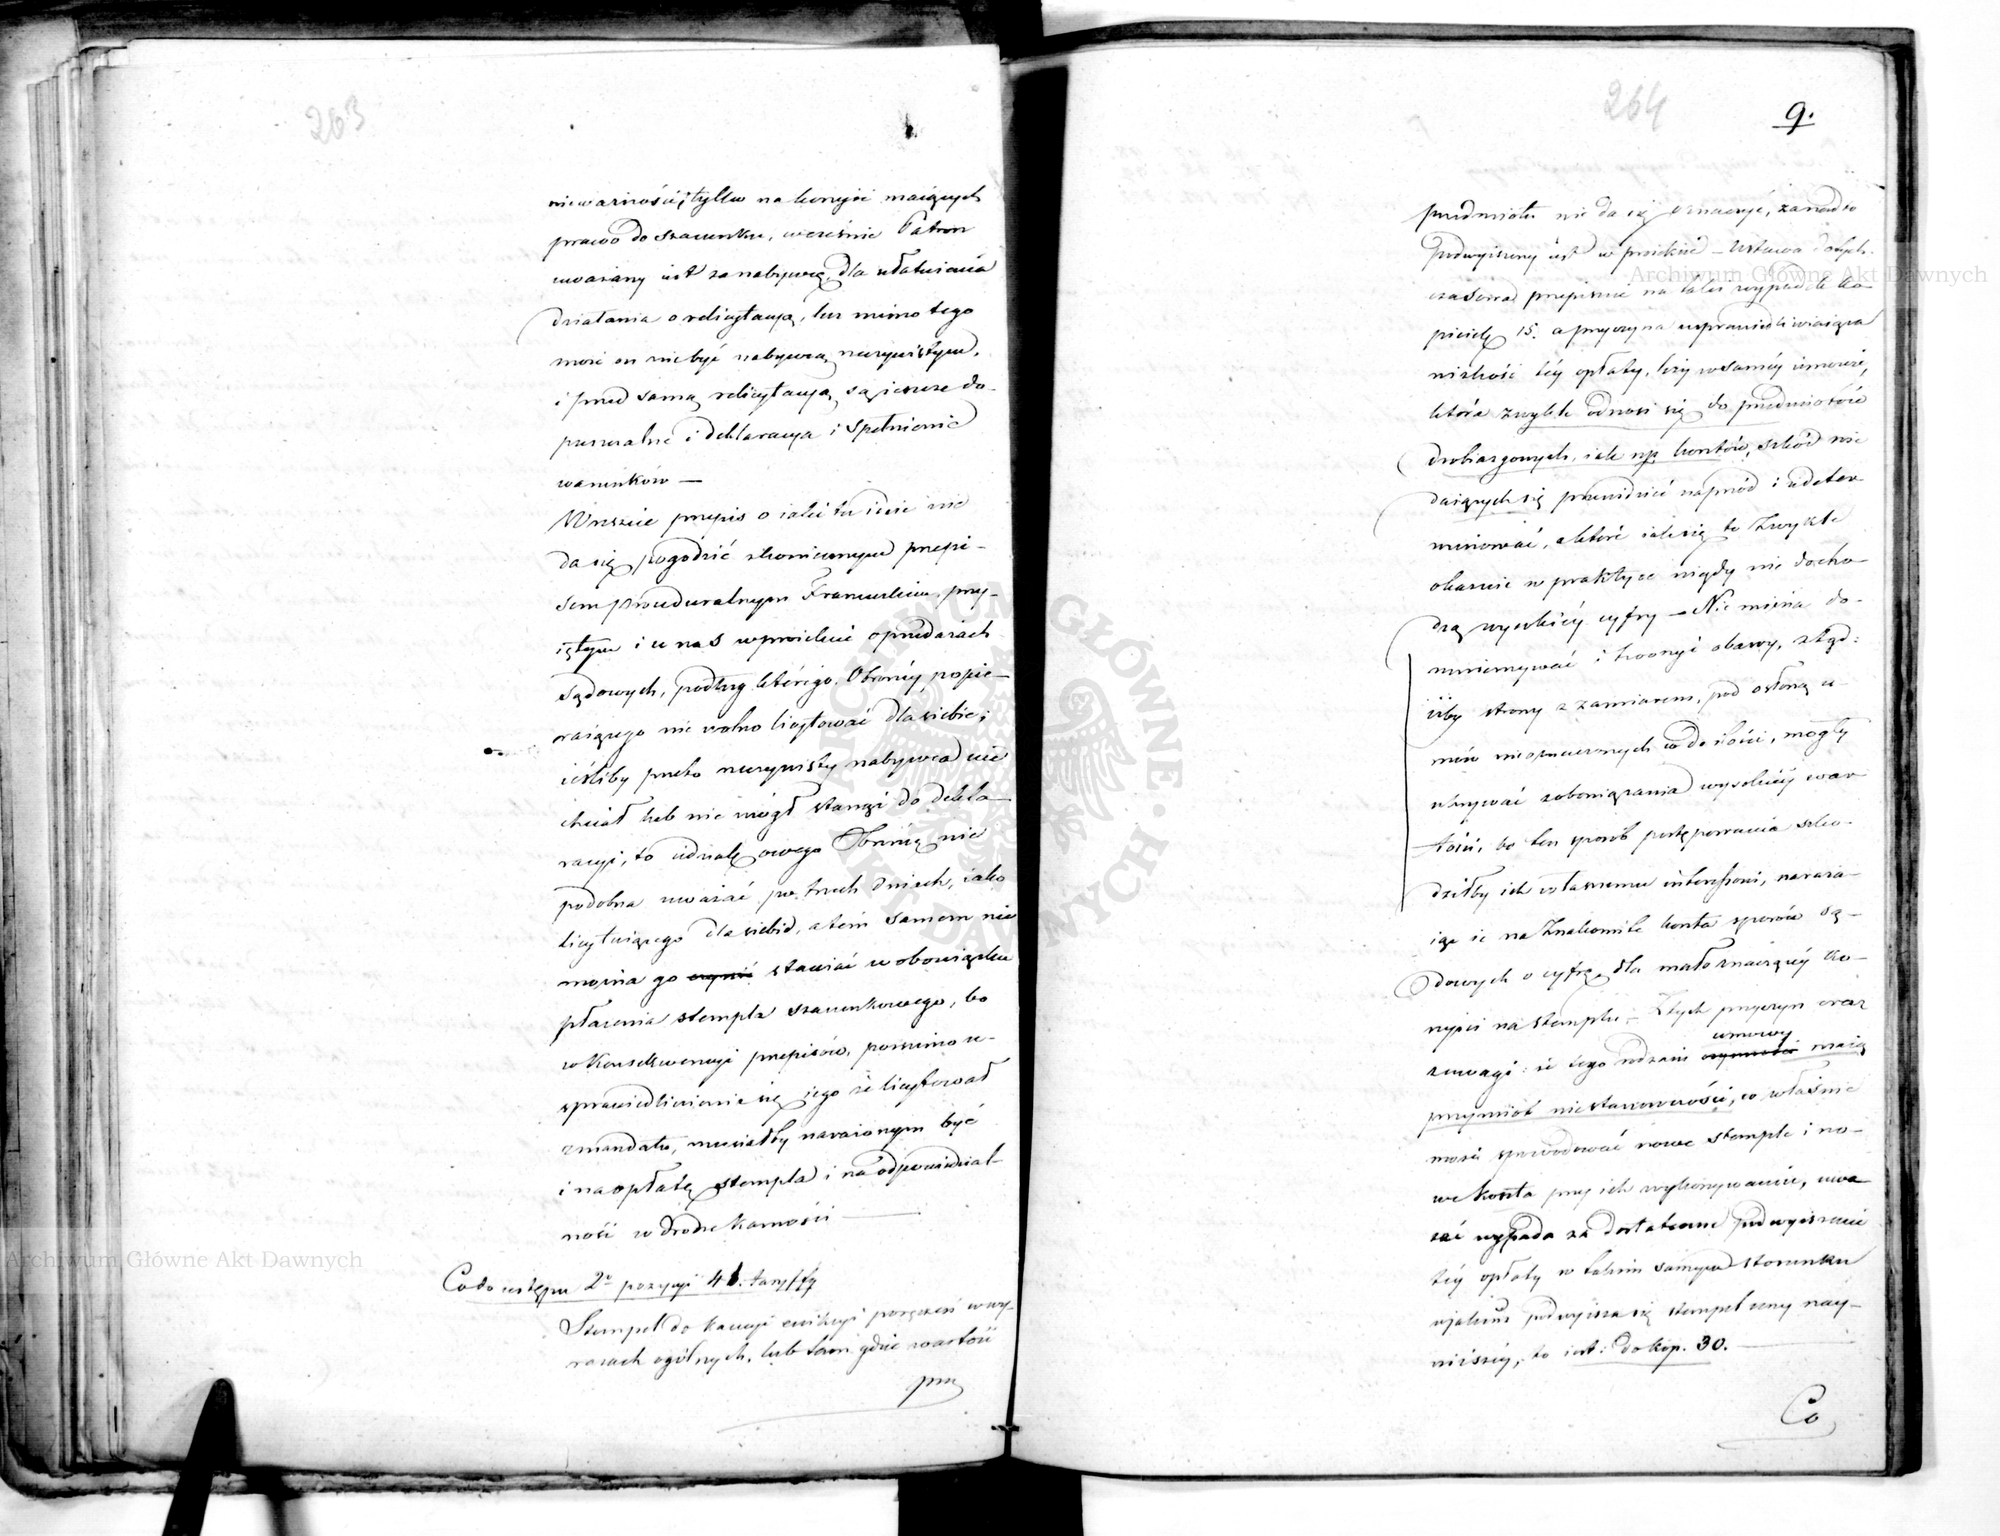 263
nieważności, tylko na korzyść mających
prawo do szacunku, wcześnie Patron
uważany jest za nabywcę, dla ułatwienia
działania o relicytacyą, lecz mimo tego
może on niebyć nabywcą rzeczywistym,
i przed samą relicytacyą są jeszcze do-
puszczalne i deklaracya i spełnienie
warunków —
Wreszcie przepis o jakie tu idzie nie
da się pogodzić z proceduralnym przepi-
sem proceduralnym Francuzkim, przy-
iętym i u nas w proiekcie o przedażach
sądowych, podług którego Obrońcy popie-
rającego nie wolno licytować dla siebie;
jeśliby przeto rzeczywisty nabywca nie
chciał lub nie mógł stanąć do dekla-
racyi, to działającego Obrońcę nie
podobna uważać po trzech dniach, jako
licytującego dla siebie, a tém samem nie
można go stawiać w obowiązku
płacenia stempla szacunkowego, bo
w konsekwencyi przepisów, pomimo u-
sprawiedliwienia się jego że licytował
z mandatu, musiałby narażonym być
i na opłatę stempla i na odpowiedzial-
ność w drodze karności —
Co do ustępu 2º pozycyi 41. taryffy
Stempel do kaucyi ewikcyi poręczeń w wy-
razach ogólnych, lub tam gdzie wartość
prze
264
9.
przedmiotu nie da się oznaczyć, zanadto
podwyższony jest w proiekcie — Ustawa dotych-
czasowa przepisuje na takie wypadki ko-
piejek 15. a przyczyna usprawiedliwiająca
niskość téj opłaty, leży w saméj umowie,
która zwykle odnosi się do przedmiotów
drobiazgowych, jak np. kosztów, szkód nie
dających się przewidzieć naprzód i udeter-
minować, a które jak się to zwykle
okazuje w praktyce nigdy nie docho-
dzą wysokiéj cyfry — Nie można do-
mniemywać i trwonyi obawy, ażąd:
iżby strony z zamiarem, pod osłoną u-
mów nieoznaczonych co do ilości, mogły
ukrywać zobowiązania wysokiéj war-
tości, bo ten sposób postępowania szko-
dziłby ich własnemu interessowi, naraża-
jąc je na znakomite koszta sporów są-
dowych o cyfrę, dla małoznaczącéj ko-
rzyści na stemplu — Z tych przyczyn oraz
z uwagi: że tego rodzaju umowy mają
przymiot niestanowczości, co właśnie
może spowodować nowe stemple i no-
we koszta przy ich wykonywaniu, uwa-
żać wypada za dostateczne podwyższenie
téj opłaty w takim samym stosunku
w jakim podwyższa się stempel ceny nay-
niższéy, to jest: do kop. 30. —
Co
Archiwum Główne Akt Dawnych
Archiwum Główne Akt Dawnych
ARCHIWUM GŁÓWNE AKT DAWNYCH